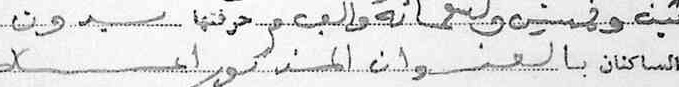 ثين وخمسين وتسعمائة والف م حرفتها بدون
الساكنان بالعنوان المذكور اعلاه